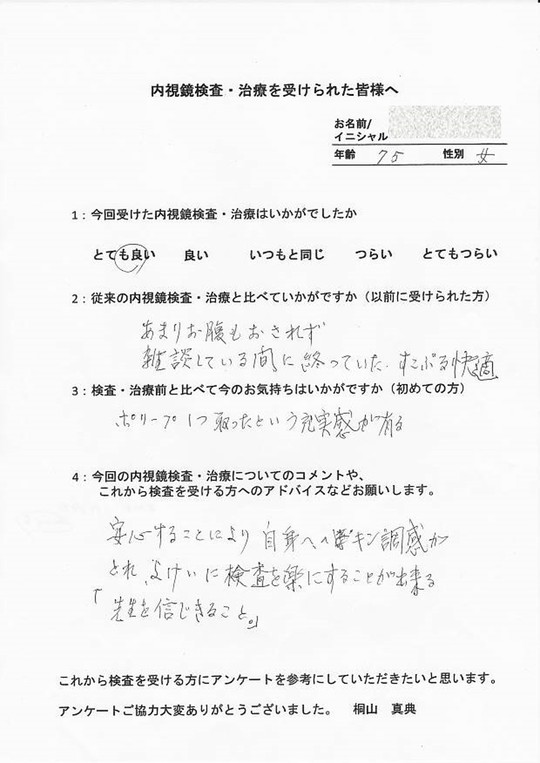 内視鏡検査・治療を受けられた皆様へ
お名前/
イニシャル
年齢 75 性別 女
1：今回受けた内視鏡検査・治療はいかがでしたか
とても良い 良い いつもと同じ つらい とてもつらい
2：従来の内視鏡検査・治療と比べていかがですか（以前に受けられた方）
あまりお腹もおされず
雑談している間に終っていた．すこぶる快適
3：検査・治療前と比べて今のお気持ちはいかがですか（初めての方）
ポリープ1つ取ったという充実感が有る
4：今回の内視鏡検査・治療についてのコメントや、
これから検査を受ける方へのアドバイスなどお願いします。
安心することにより自身への キン調感が
とれ よけいに検査を楽にすることが出来る
「先生を信じきること。」
これから検査を受ける方にアンケートを参考にしていただきたいと思います。
アンケートご協力大変ありがとうございました。 桐山 真典